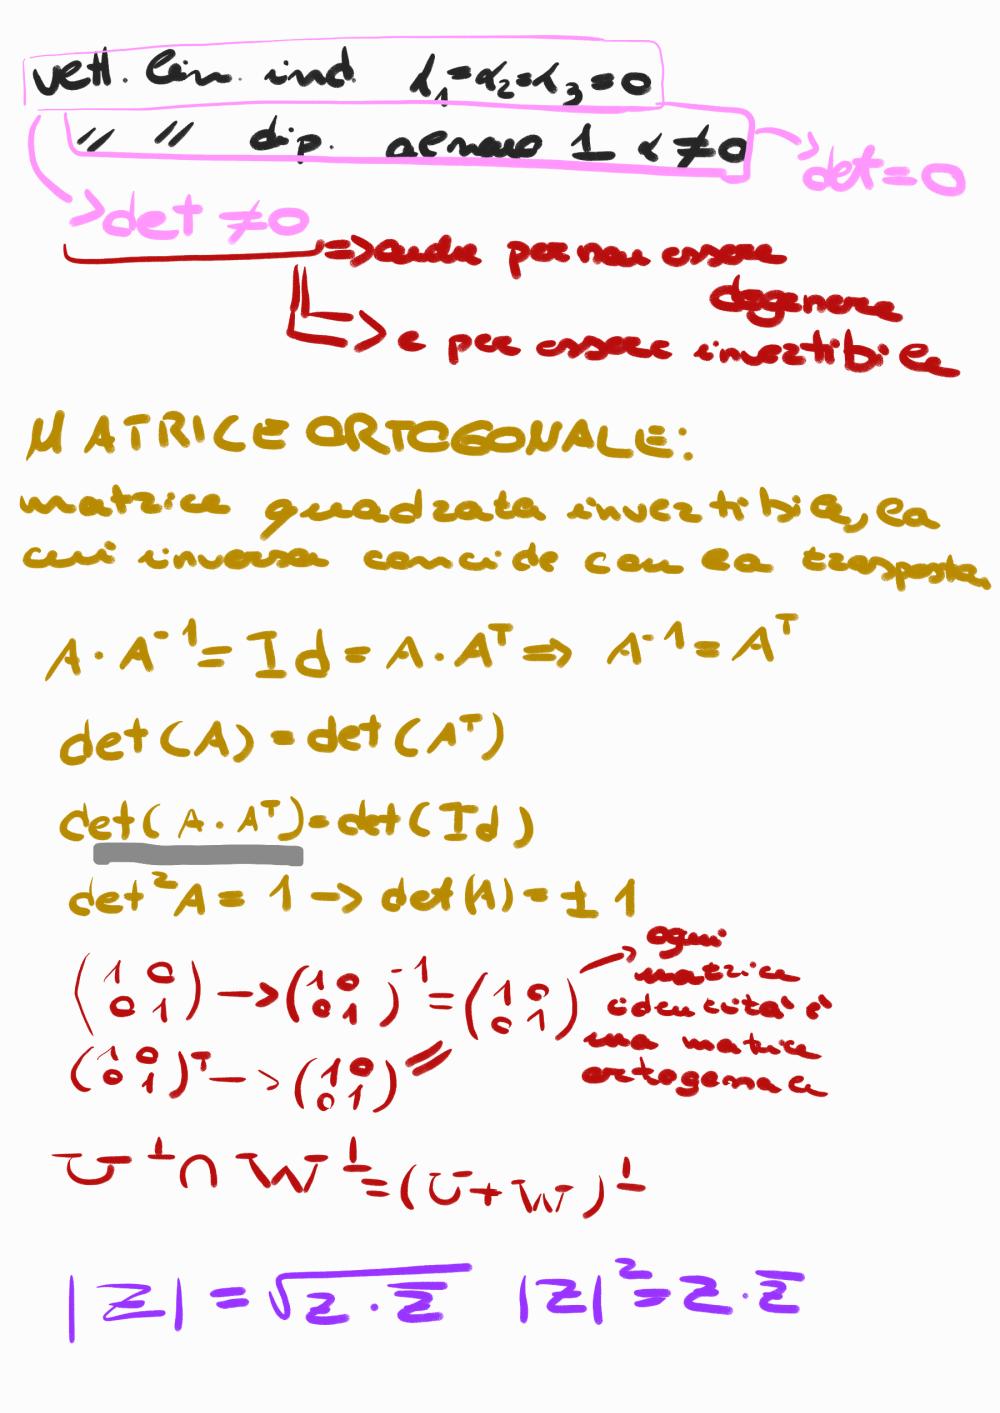 vett. lin. ind. α₁=α₂=α₃=0
// // dip. almeno 1 α≠0
det=0
>det ≠0
=>anche per non essere
degenere
e per essere invertibile
MATRICE ORTOGONALE:
matrice quadrata invertibile, la
cui inversa concide con la trasposta
A·A⁻¹=Id=A·Aᵀ⇒ A⁻¹=Aᵀ
det(A)=det(Aᵀ)
det(A·Aᵀ)=det(Id)
det²A=1→det(A)=±1
(1 0
0 1)→(1 0
0 1)⁻¹=(1 0
0 1)
(1 0
0 1)ᵀ→(1 0
0 1)
ogni
matrice
identità è
una matrice
ortogonale
U⊥∩W⊥=(U+W)⊥
|Z|=√Z·Z̅ |Z|²=Z·Z̅